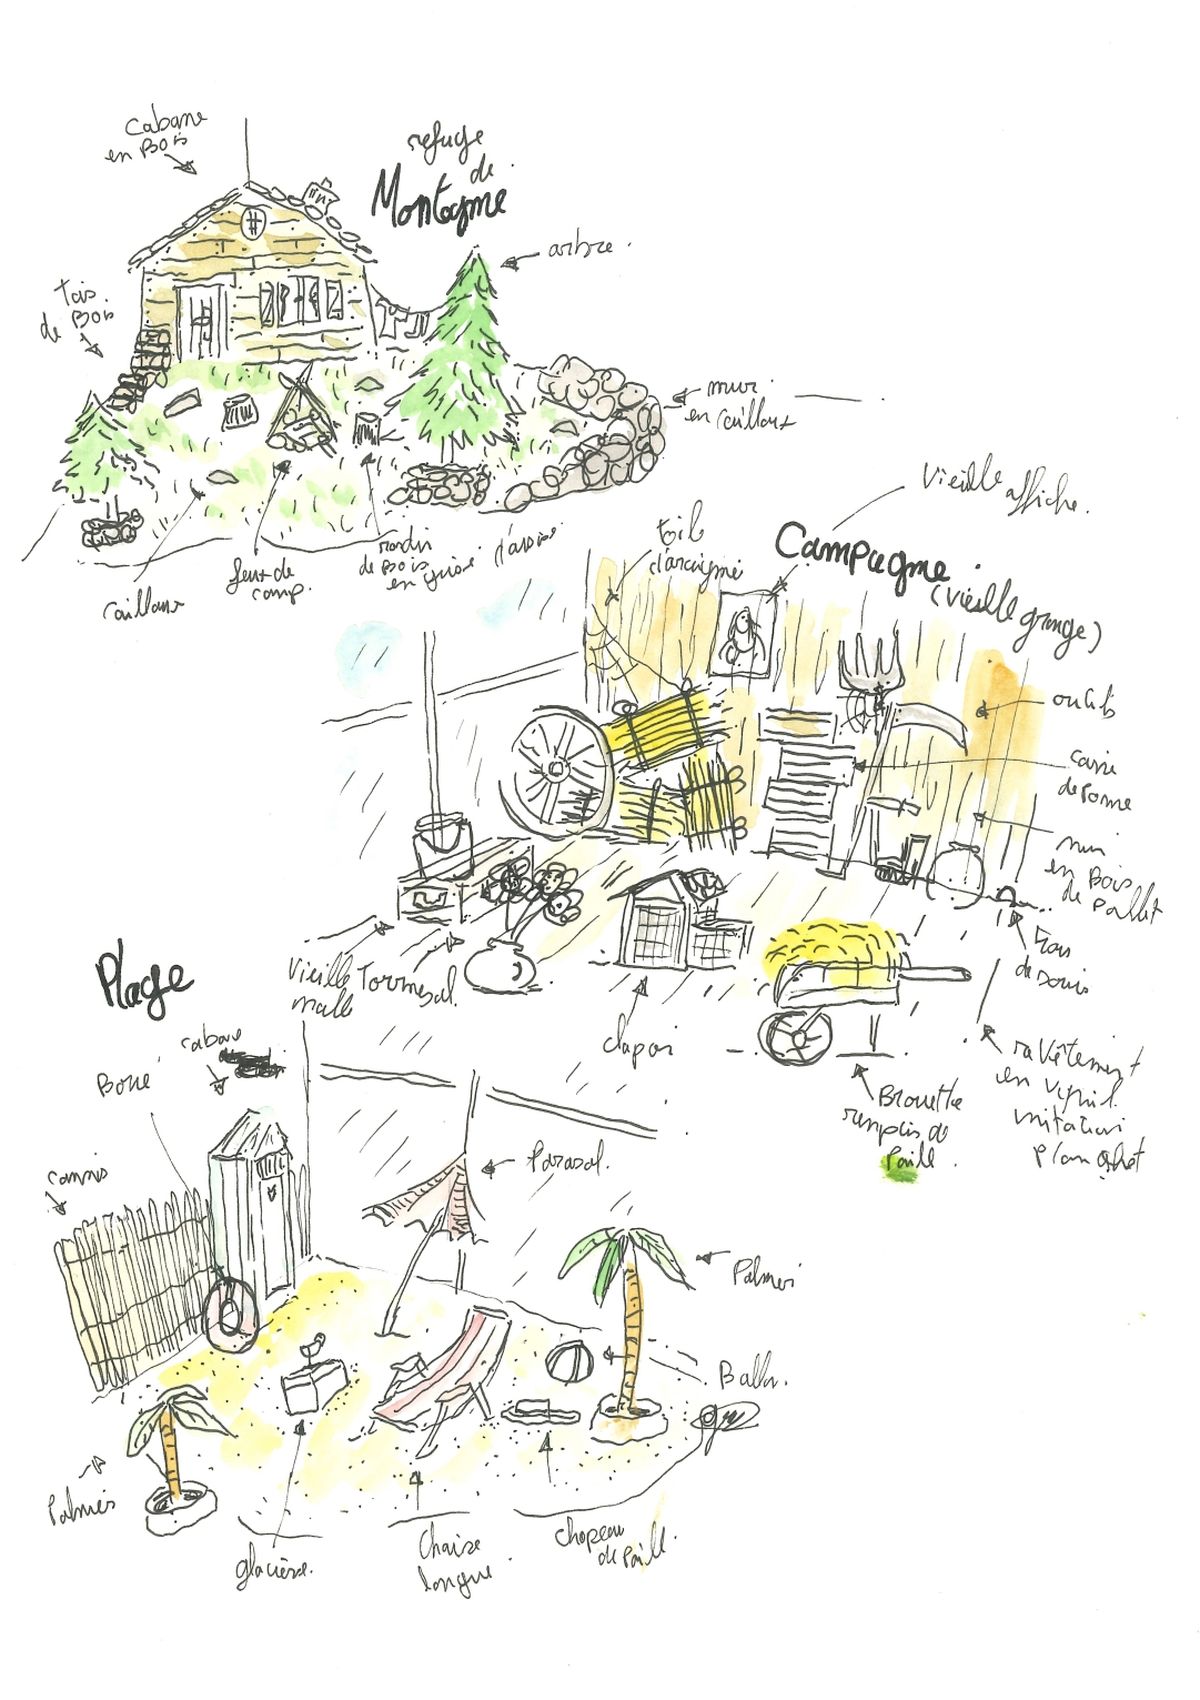 Cabane
en Bois
refuge
de
Montagne
arbre.
tas
de Bois
mur
en caillout
caillout
feux de
camp.
rondin
de Bois
en guise d'assise
Vieille affiche.
toile
d'araigné
Campagne
(Vieille grange)
outils
caisse
de Pomme
mur
en Bois
de Pallet
trou
de souris
Vieille
malle
Tournesol.
clapier
Brouette
remplis de
Paill.
ravêtement
en vynil
imitation
planchet
Plage
cabane
Boué
cannis
Parasol.
Palmier
Ballon.
Palmier
glacière.
Chaise
longue.
chapeau
de Paill.